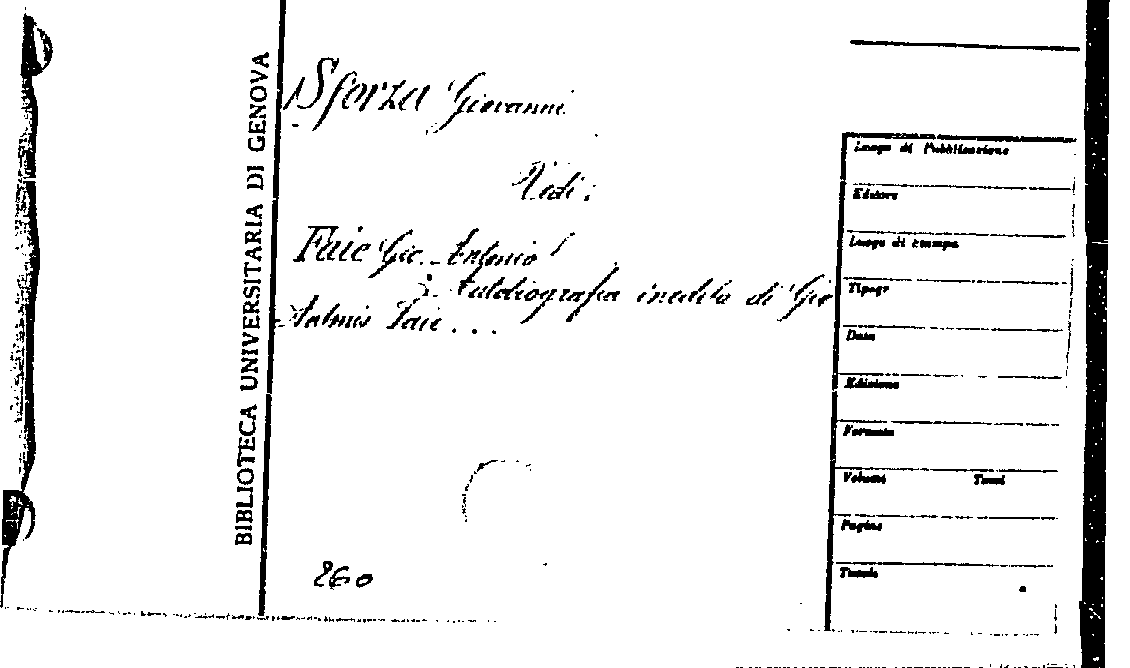 BIBLIOTECA UNIVERSITARIA DI GENOVA
Sforza Giovanni
Vedi:
Faie Gio. Antonio
: Autobiografia inedita di Gio
Antonio Faie...
260
Luogo di Pubblicazione
Editore
Luogo di stampa
Tipogr
Data
Edizione
Formato
Volumi Tomi
Pagine
Tavole